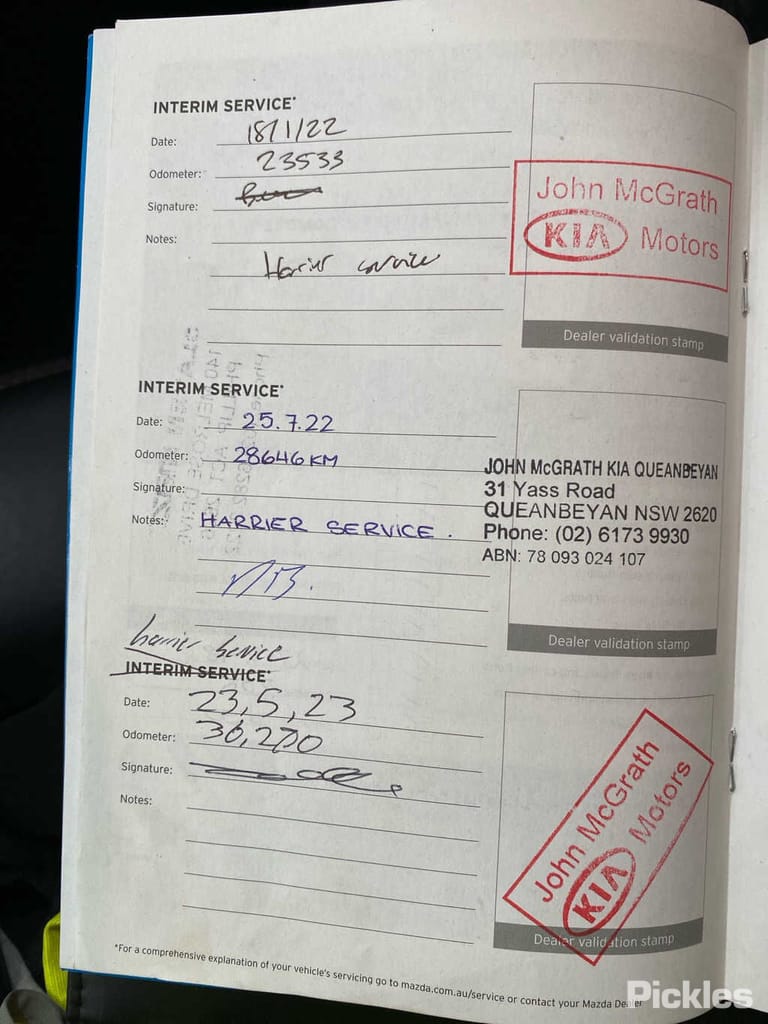 INTERIM SERVICE*
Date: 18/1/22
Odometer: 23533
Signature:
Notes:
Harrier service
John McGrath
KIA Motors
Dealer validation stamp
INTERIM SERVICE*
Date: 25.7.22
Odometer: 28646 KM
Signature:
Notes: HARRIER SERVICE.
JOHN McGRATH KIA QUEANBEYAN
31 Yass Road
QUEANBEYAN NSW 2620
Phone: (02) 6173 9930
ABN: 78 093 024 107
Dealer validation stamp
harrier service
INTERIM SERVICE*
Date: 23,5,23
Odometer: 36,200
Signature:
Notes:
John McGrath
KIA Motors
Dealer validation stamp
*For a comprehensive explanation of your vehicle's servicing go to mazda.com.au/service or contact your Mazda Dealer
Pickles